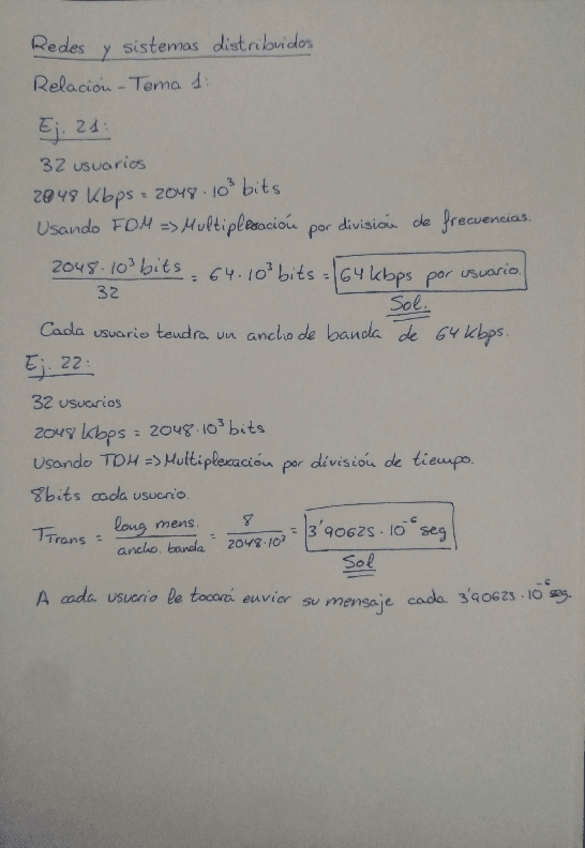 Redes y sistemas distribuidos
Relación - Tema 1:
Ej. 21:
32 usuarios
2048 Kbps = 2048 · 10³ bits
Usando FDM => Multiplexación por división de frecuencias.
2048 · 10³ bits / 32 = 64 · 10³ bits = 64 kbps por usuario.
Sol.
Cada usuario tendra un ancho de banda de 64 Kbps.
Ej. 22:
32 usuarios
2048 Kbps = 2048 · 10³ bits
Usando TDM => Multiplexación por división de tiempo.
8 bits cada usuario.
TTrans = long mens. / ancho. banda = 8 / 2048·10³ = 3'90625 · 10⁻⁶ seg
Sol
A cada usuario le tocará enviar su mensaje cada 3'90625 · 10⁻⁶ seg.